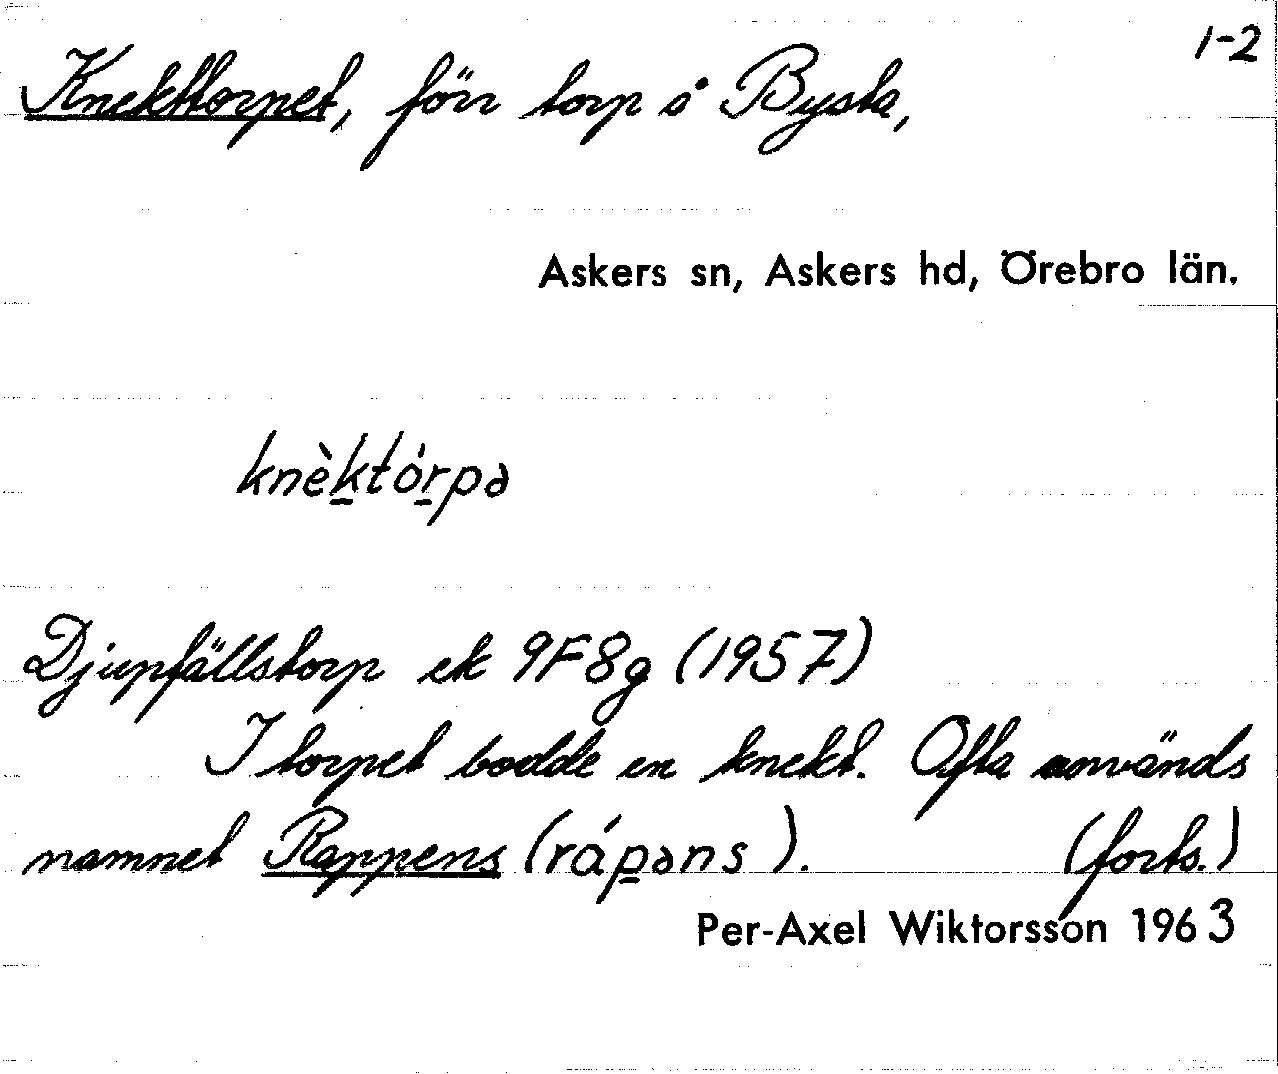 1-2
Knekttorpet, förr torp i Bysta,
Askers sn, Askers hd, Örebro län.
knèktórpə
Djupfällstorp ek 9F8g (1957)
I torpet bodde en knekt. Ofta används
namnet Rappens (rápəns). (forts.)
Per-Axel Wiktorsson 1963